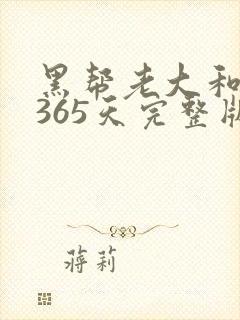 黑帮老大和
365天完整版
蒋莉